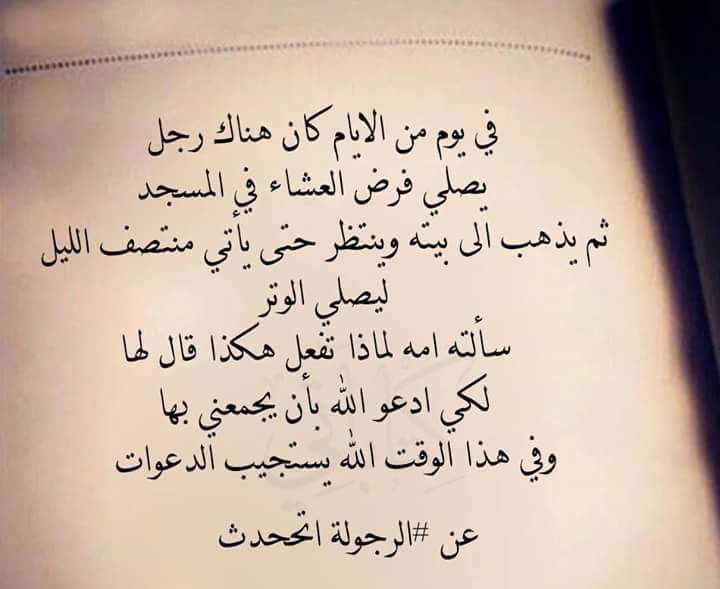 في يوم من الايام كان هناك رجل
يصلي فرض العشاء في المسجد
ثم يذهب الى بيته وينتظر حتى يأتي منتصف الليل
ليصلي الوتر
سألته امه لماذا تفعل هكذا قال لها
لكي ادعو الله بأن يجمعني بها
وفي هذا الوقت الله يستجيب الدعوات
عن #الرجولة اتححدث